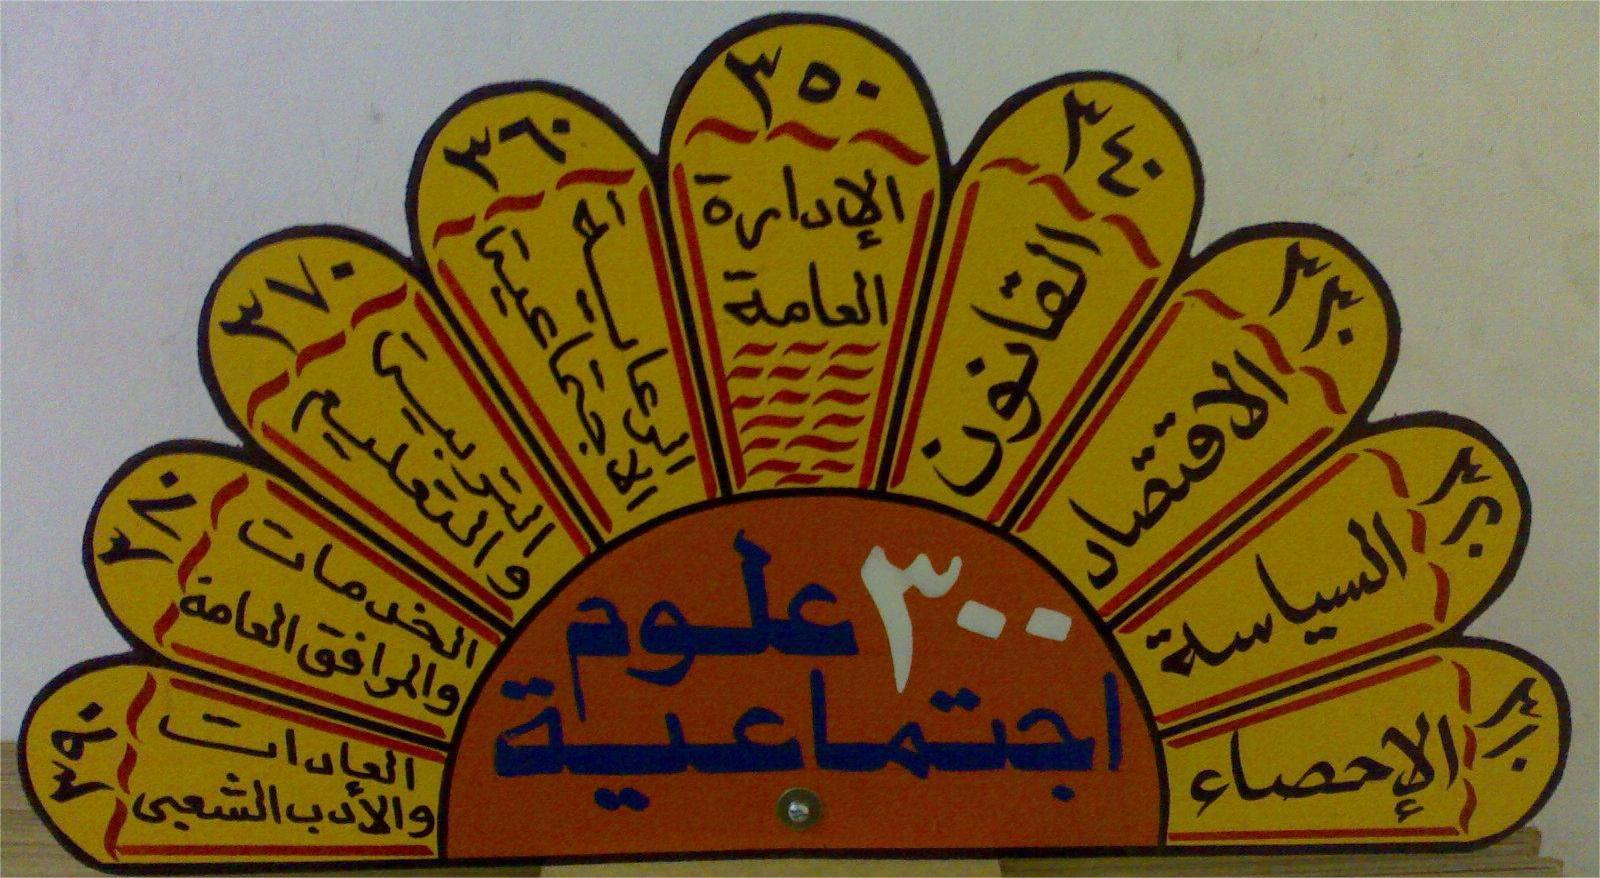 ٣٠٠ علوم
اجتماعية
٣١٠
الإحصاء
٣٢٠
السياسة
٣٣٠
الاقتصاد
٣٤٠
القانون
٣٥٠
الإدارة
العامة
٣٦٠
الرعاية
الاجتماعية
٣٧٠
التربية
والتعليم
٣٨٠
الخدمات
والمرافق العامة
٣٩٠
العادات
والأدب الشعبى